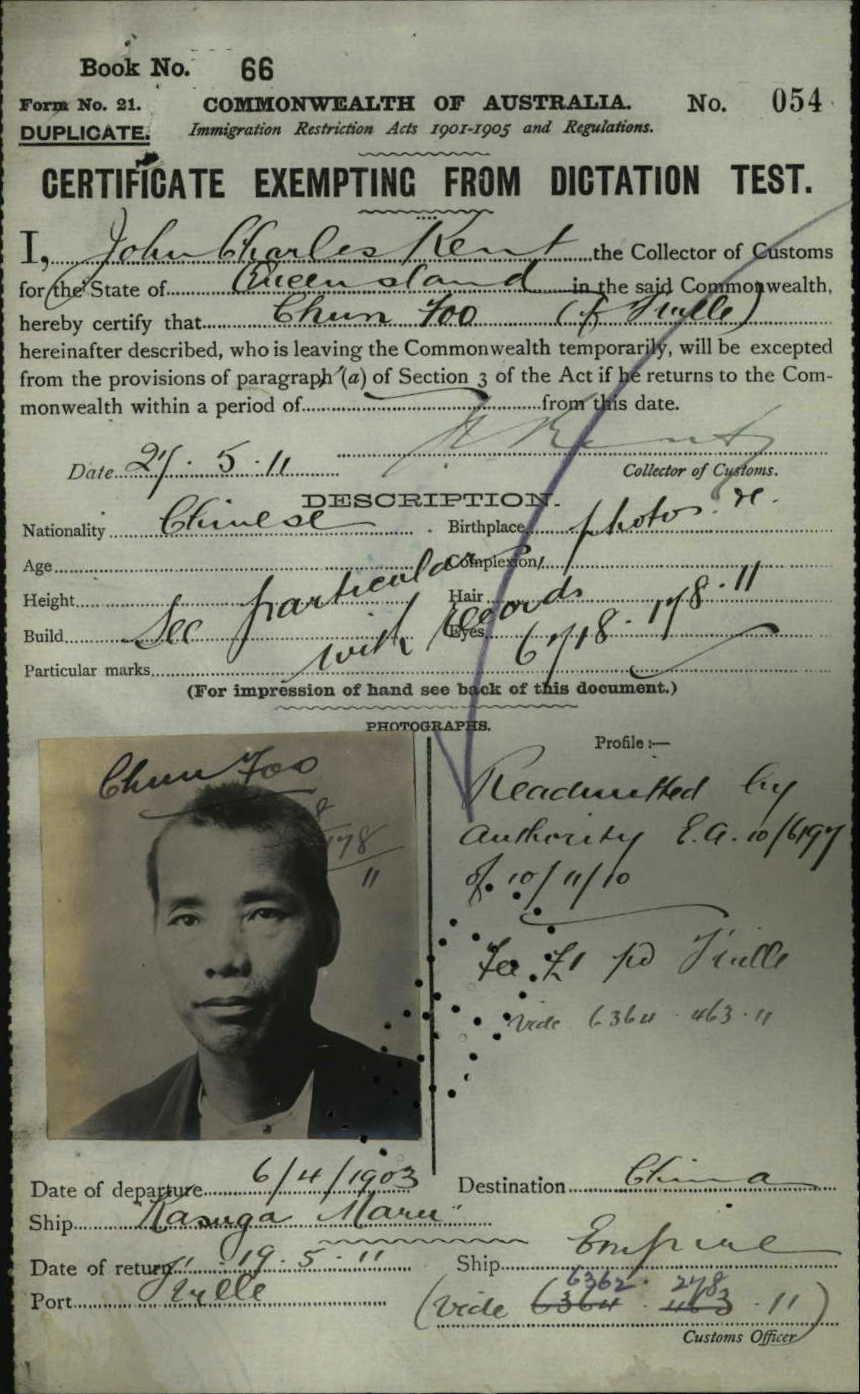 Book No. 66
Form No. 21. COMMONWEALTH OF AUSTRALIA. No. 054
DUPLICATE. Immigration Restriction Acts 1901-1905 and Regulations.
CERTIFICATE EXEMPTING FROM DICTATION TEST.
I, John Charles Kent the Collector of Customs
for the State of Queensland in the said Commonwealth,
hereby certify that Chun Foo (of T'ville)
hereinafter described, who is leaving the Commonwealth temporarily, will be excepted
from the provisions of paragraph (a) of Section 3 of the Act if he returns to the Com-
monwealth within a period of from this date.
Date 27. 5. 11 Collector of Customs.
DESCRIPTION.
Nationality Chinese Birthplace photos &c.
Age Complexion
Height See particulars Hair
Build with records Eyes 6718. 178. 11
Particular marks
(For impression of hand see back of this document.)
PHOTOGRAPHS.
Profile :—
Chun Foo
178
11
Readmitted by
authority E.A. 10/6197
of 10/11/10
Fee £1 pd T'ville
Vide 6364 . 463 . 11
Date of departure 6/4/1903 Destination China
Ship "Kasuga Maru"
Date of return 19. 5. 11 Ship Empire
Port T'ville
6362. 278
(Vide 6364 . 463 . 11)
Customs Officer